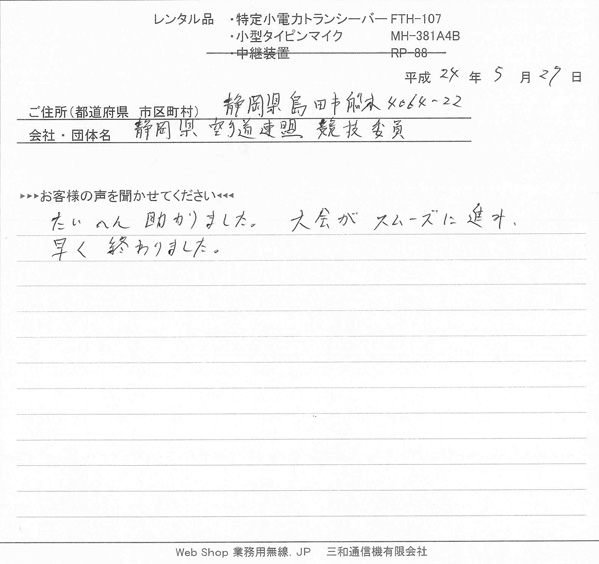 レンタル品 ・特定小電力トランシーバー FTH-107
・小型タイピンマイク MH-381A4B
・中継装置 RP-88
平成 24 年 5 月 29 日
ご住所(都道府県 市区町村) 静岡県島田市船木4064-22
会社・団体名 静岡県 空手道連盟 競技委員
▸▸▸お客様の声を聞かせてください◂◂◂
たいへん 助かりました。 大会が スムーズに 進み、
早く 終わりました。
Web Shop 業務用無線.JP 三和通信機有限会社